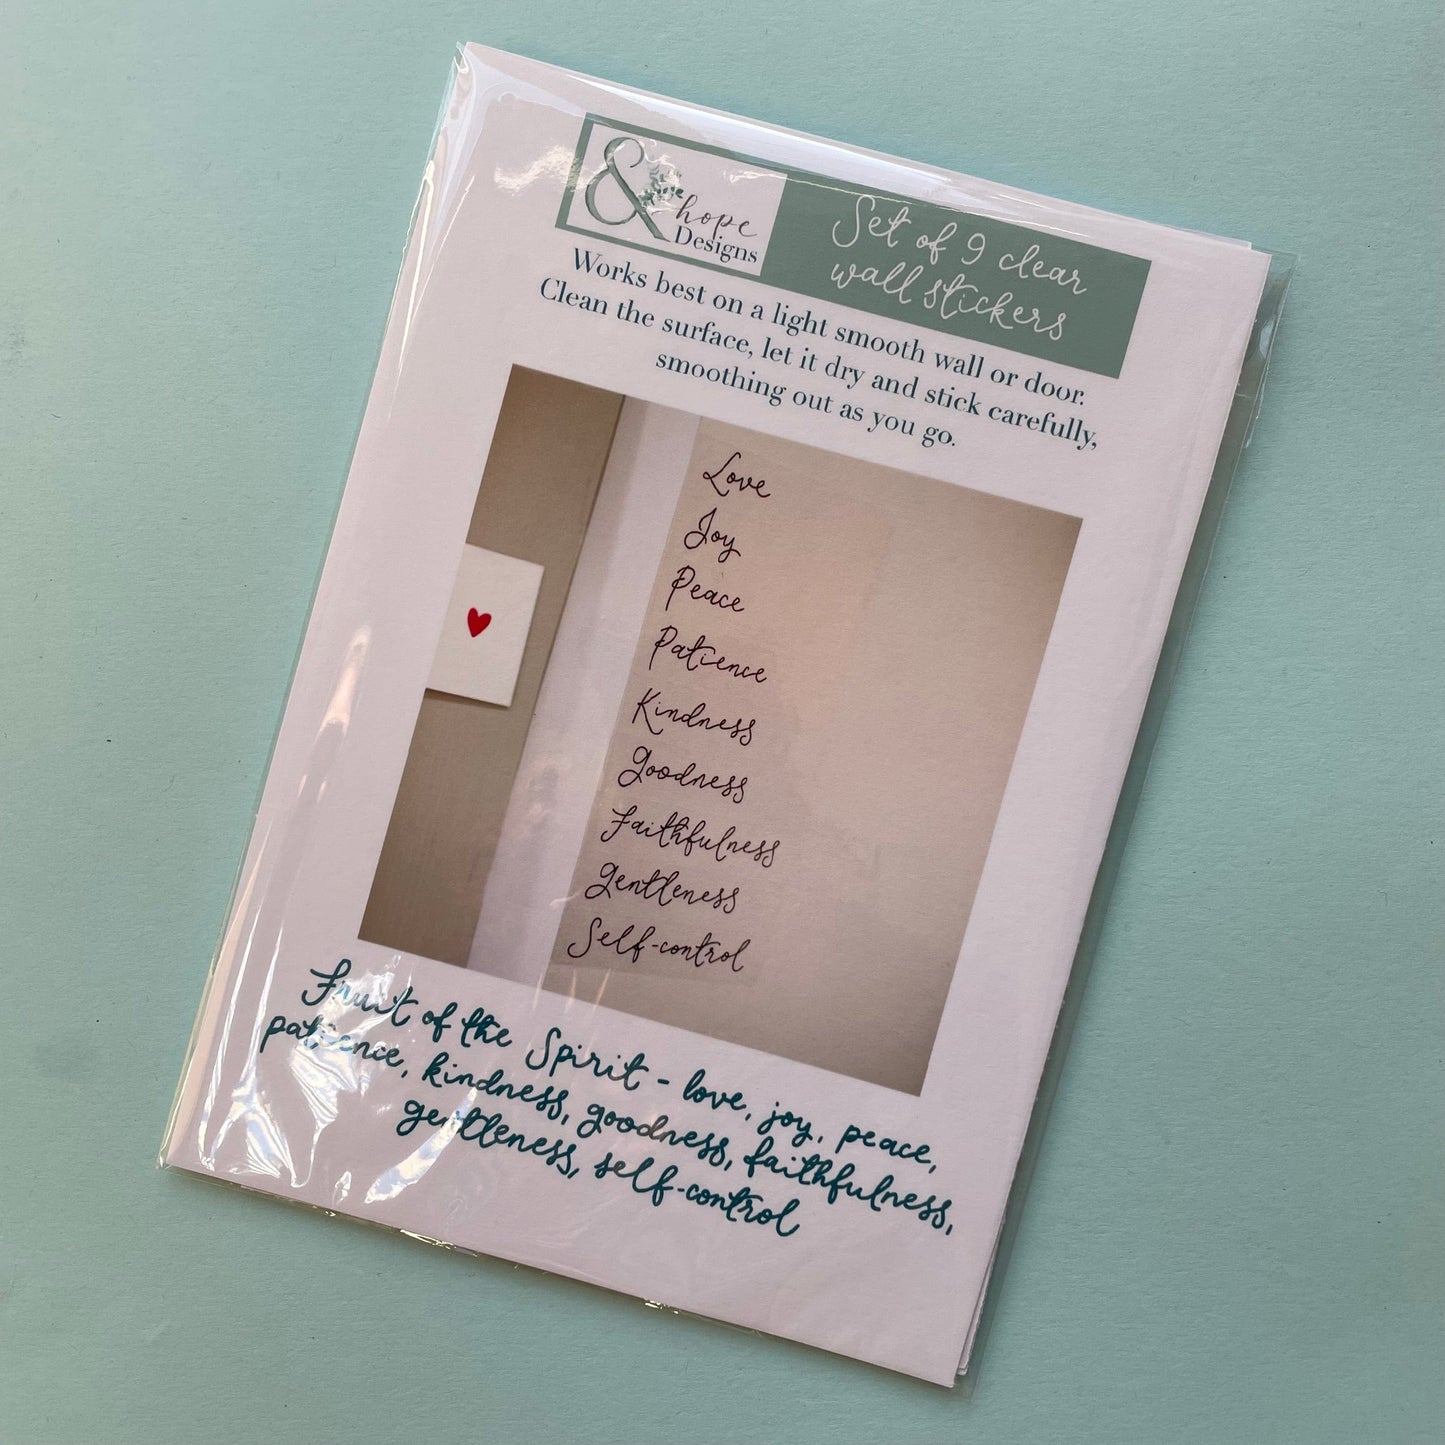 & hope
Designs
Set of 9 clear
wall stickers
Works best on a light smooth wall or door.
Clean the surface, let it dry and stick carefully,
smoothing out as you go.
Love
Joy
Peace
Patience
Kindness
Goodness
Faithfulness
Gentleness
Self-control
Fruit of the Spirit - love, joy, peace,
patience, kindness, goodness, faithfulness,
gentleness, self-control